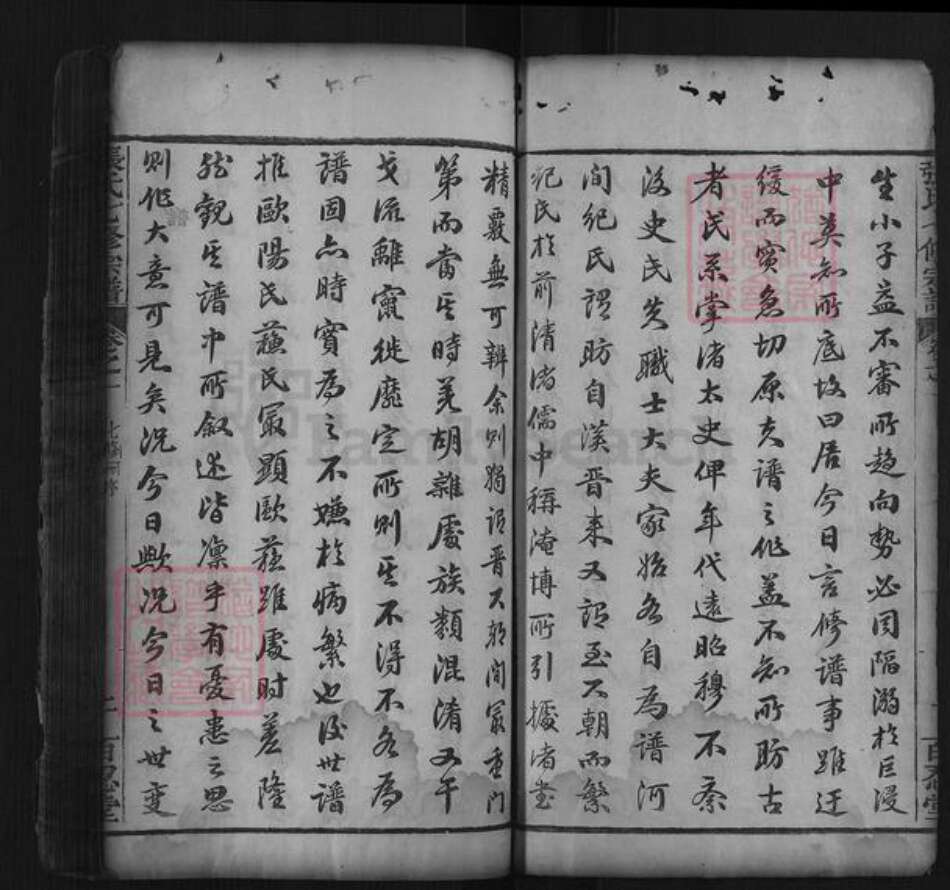 生小子益不審所趨向勢必因陷溺於巨浸
中莫知所底故曰居今日言修譜事雖迂
緩而實急切原夫譜之作蓋不知所昉古
者氏系掌諸太史俾年代遠昭穆不紊
後史氏失職士大夫家始各自為譜河
間紀氏謂昉自漢晉來又謂至六朝而繁
紀氏於前清諸儒中稱淹博所引據諸書
精覈無可辨余則獨謂晉六朝間最重門
第而當其時羌胡雜處族類混淆又干
戈流離竄徙靡定所則其不得不各為
譜固亦時實為之不嫌於病繁也後世譜
推歐陽氏蘇氏最顯歐蘇雖處時差隆
然觀其譜中所叙述皆凜乎有憂患之思
則作大意可見矣況今日歟況今日之世變
張氏七修宗譜
卷之
百忍堂
FamilySearch